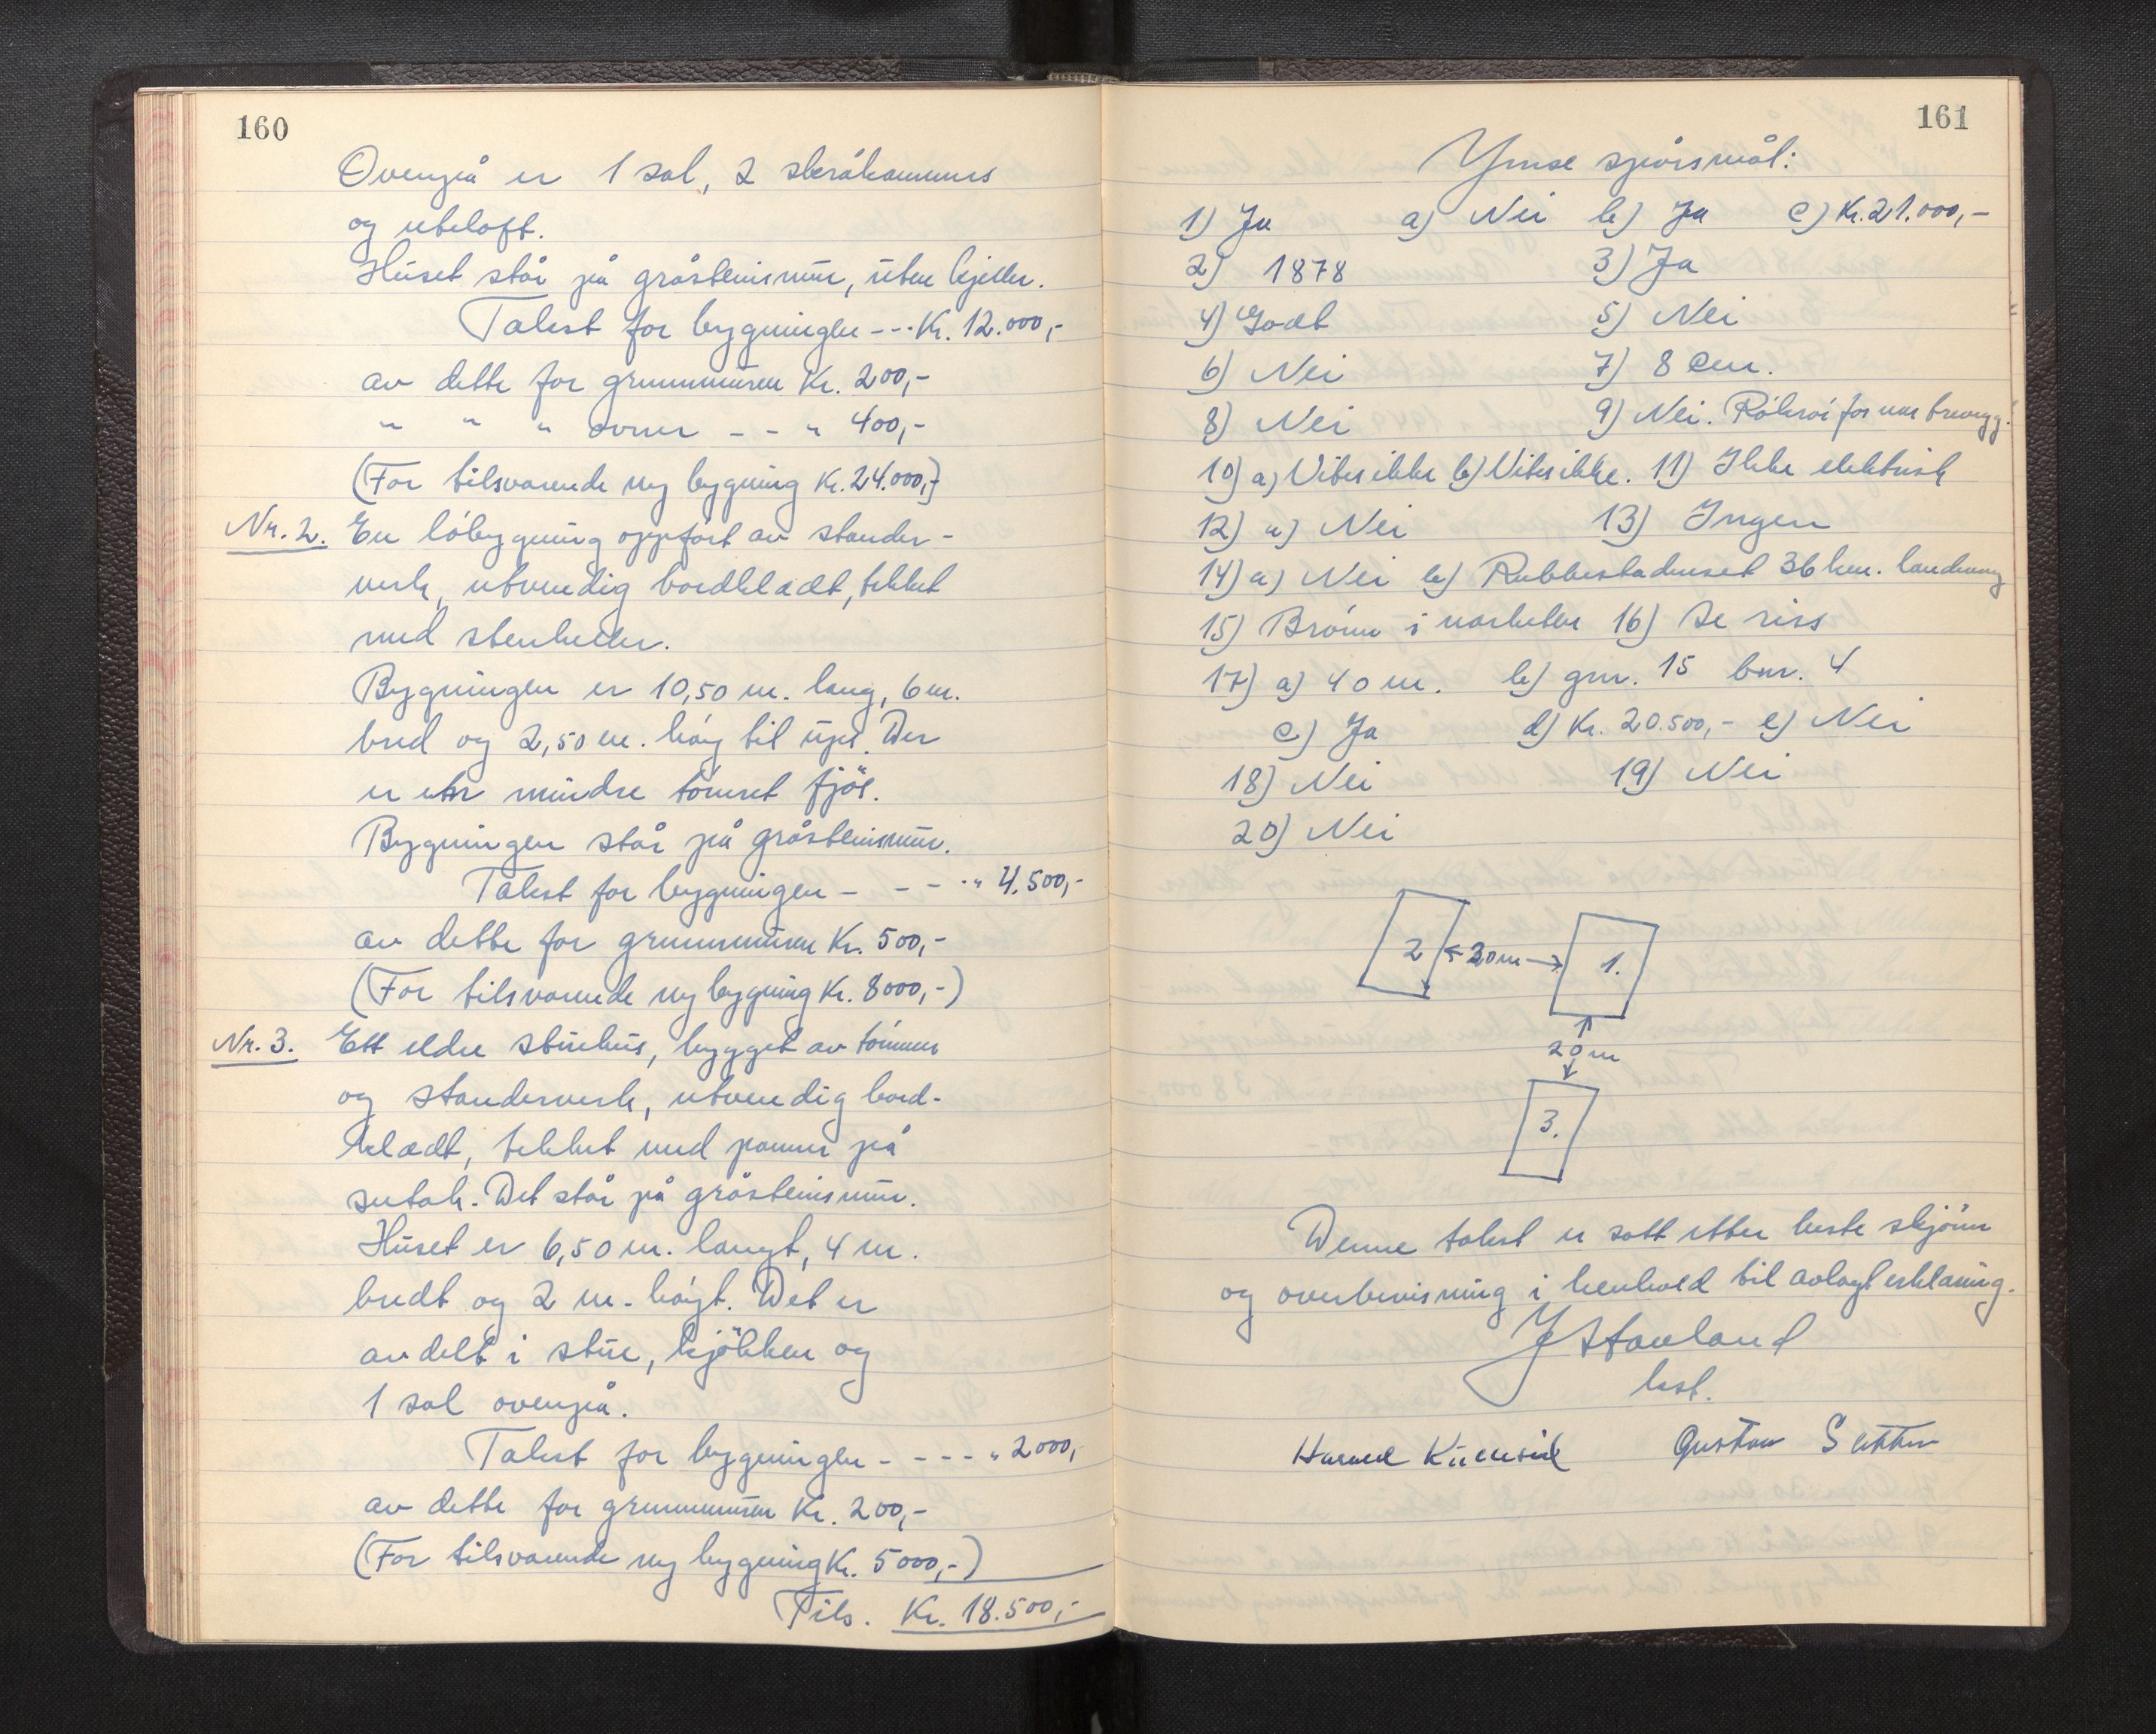 160
Ovenpå er 1 sal, 2 skråkammers
og uteloft.
Huset står på gråsteinsmur, uten kjeller.
Takst for bygningen --- Kr. 12.000,-
av dette for grunnmuren Kr. 200,-
" " " ovner - - " 400,-
(For tilsvarende ny bygning Kr. 24.000,-)
Nr. 2. En löbygning oppfört av stender-
verk, utvendig bordklædt, tekket
med stenheller.
Bygningen er 10,50 m. lang, 6 m.
bred og 2,50 m. höy til ups. Der
er en mindre tömret fjös.
Bygningen står på gråsteinsmur.
Takst for bygningen - - - - " 4.500,-
av dette for grunnmuren Kr. 500,-
(For tilsvarende ny bygning Kr. 8000,-)
Nr. 3. Ett eldre stuehus, bygget av tömmer
og stenderverk, utvendig bord-
klædt, tekket med panner på
sutak. Det står på gråsteinsmur.
Huset er 6,50 m. langt, 4 m.
bredt og 2 m. höyt. Det er
avdelt i stue, kjökken og
1 sal ovenpå.
Takst for bygningen - - - - " 2000,-
av dette for grunnmuren Kr. 200,-
(For tilsvarende ny bygning Kr. 5000,-)
Tils. Kr. 18.500,-
161
Ymse spörsmål:
1) Ja a) Nei b) Ja c) Kr. 21.000,-
2) 1878 3) Ja
4) Godt 5) Nei
6) Nei 7) 8 cm.
8) Nei 9) Nei. Rökröi for nær brennvegg.
10) a) Vites ikke b) Vites ikke. 11) Ikke elektrisk
12) a) Nei 13) Ingen
14) a) Nei b) Rubbestadneset 36 km. landeveg
15) Brönn i nærheten 16) Se riss
17) a) 40 m. b) gnr. 15 bnr. 4
c) Ja d) Kr. 20.500,- e) Nei
18) Nei 19) Nei
20) Nei
2 20m 1.
20 m
3.
Denne takst er satt etter beste skjönn
og overbevisning i henhold til avlagt erklæring.
J Stavland
lest.
Gustav